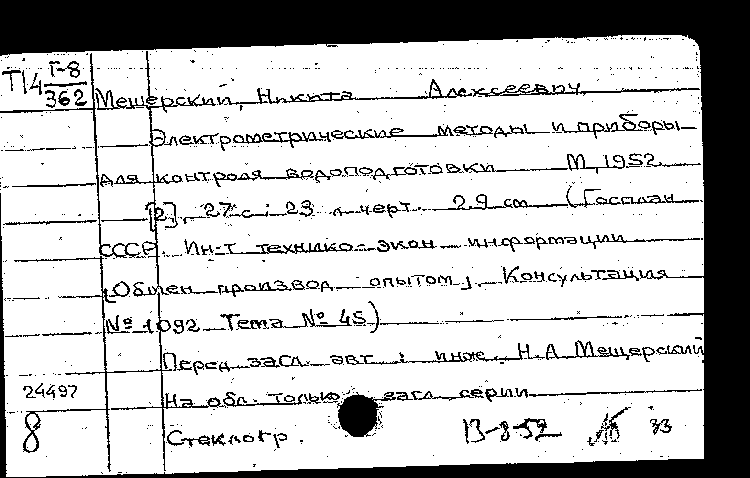 П4 Г-8
362
Мещерский, Никита Алексеевич
Электрометрические методы и приборы
для контроля водоподготовки М, 1952.
[2], 27 с; 23 л черт. 29 см (Госплан
СССР. Ин-т технико-экон информации
[Обмен производ опытом]. Консультация
№ 1092 Тема № 45)
Перед загл. авт: инж. Н.А Мещерский
24497
На обл. только загл серии
8
Стеклогр. 13-8-52 33